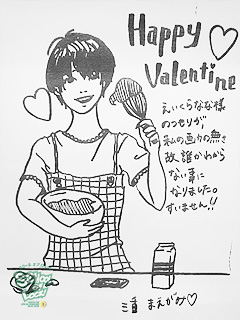 Happy
Valentine
えいくらなな様
のつもりが
私の画力の無さ
故、誰かわから
ない事に
なりました。
すいません!!
まえがみ♡